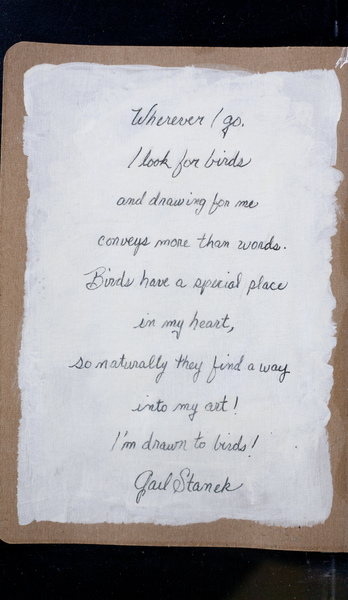 Wherever I go.
I look for birds
and drawing for me
conveys more than words.
Birds have a special place
in my heart,
so naturally they find a way
into my art!
I'm drawn to birds!
Gail Stanek